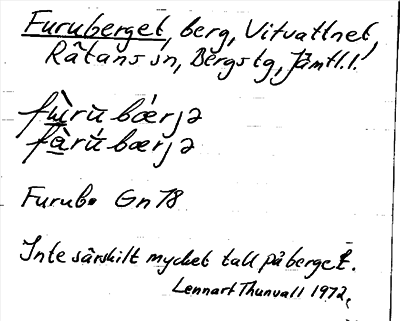 Furuberget, berg, Vitvattnet,
Rätans sn, Bergs tg, Jämtl.l.
fùrŭ bǽrjə
fàrŭ bærjə
Furub. Gn 78
Inte särskilt mycket tall på berget.
Lennart Thunvall 1972.